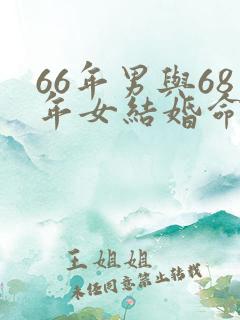 66年男與68
年女結婚命
王姐姐
未经同意禁止转载